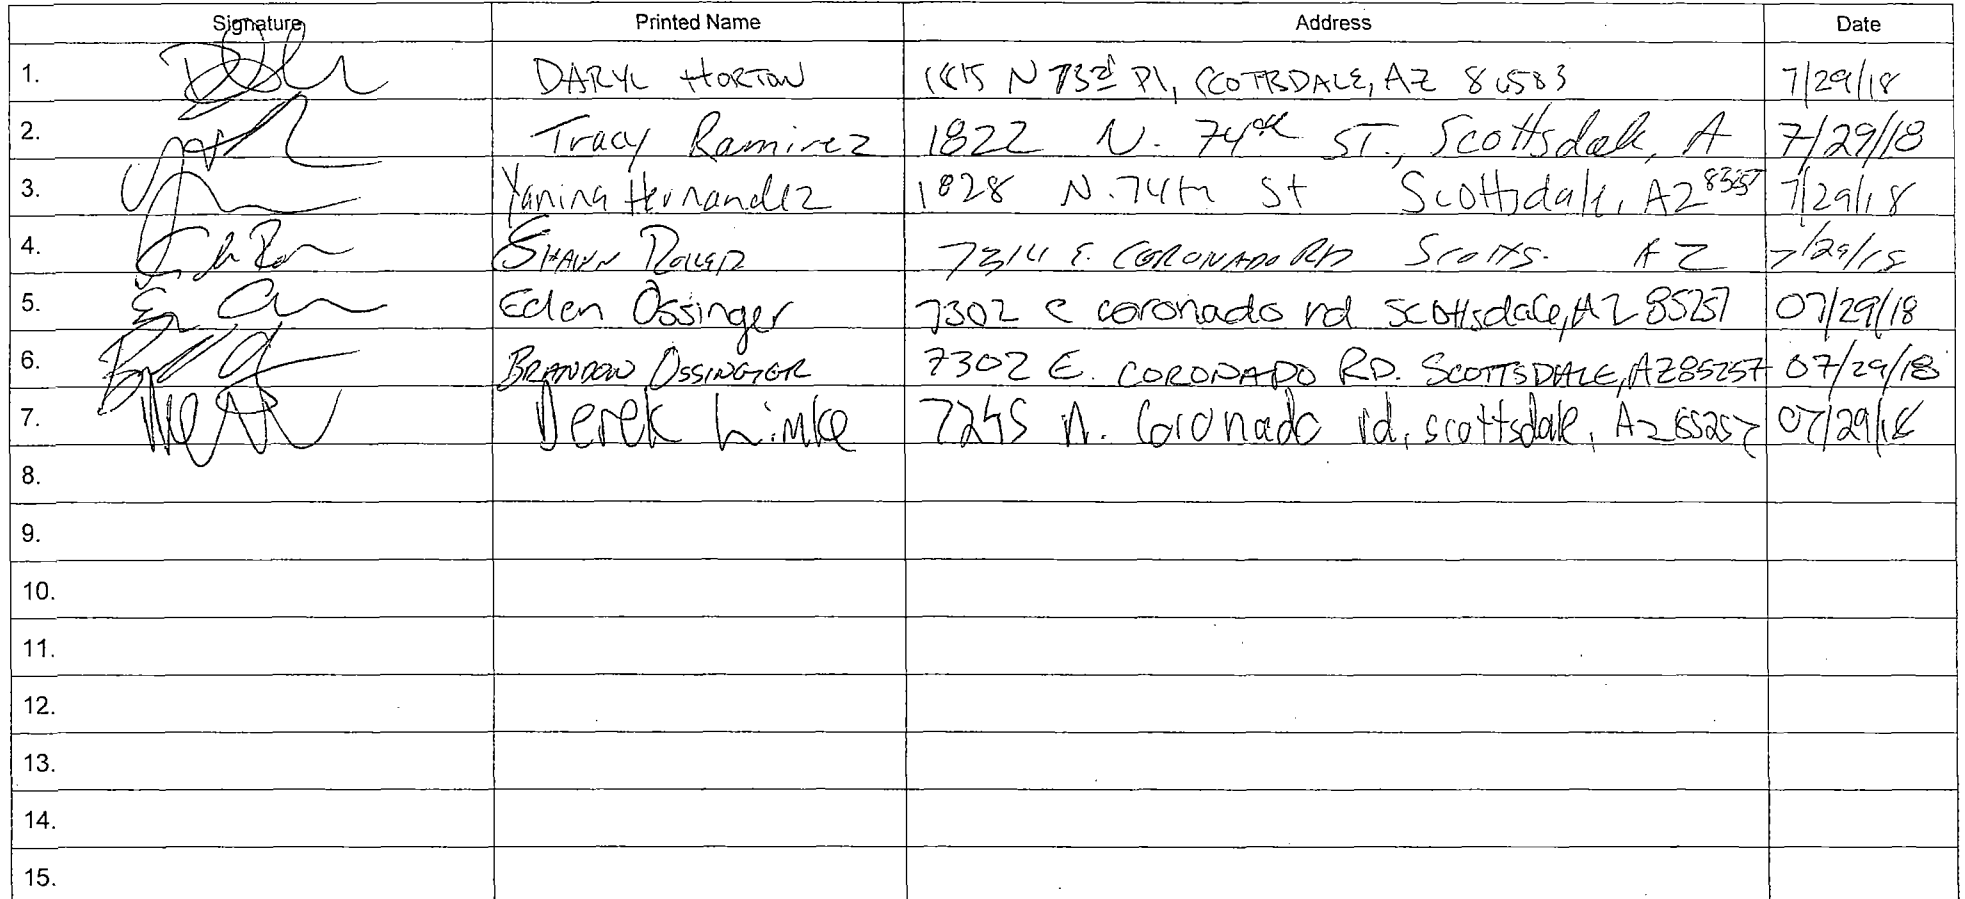 Signature Printed Name Address Date
1. DARYL HORTON N 73rd Pl, AZ 7/29/18
2. Tracy Ramirez 1822 N. 74th ST., Scottsdale, A 7/29/18
3. Yanina Hernandez 1828 N. 74th St Scottsdale, AZ 7/29/18
4. SHAWN E. CORONADO RD Scotts. AZ 7/29/18
5. Eden Ossinger 7302 e coronado rd scottsdale, AZ 85257 07/29/18
6. BRANDON OSSINGER 7302 E. CORONADO RD. SCOTTSDALE, AZ 85257 07/29/18
7. Derek Limke 7245 N. Coronado rd, scottsdale, AZ 85257 07/29/18
8.
9.
10.
11.
12.
13.
14.
15.